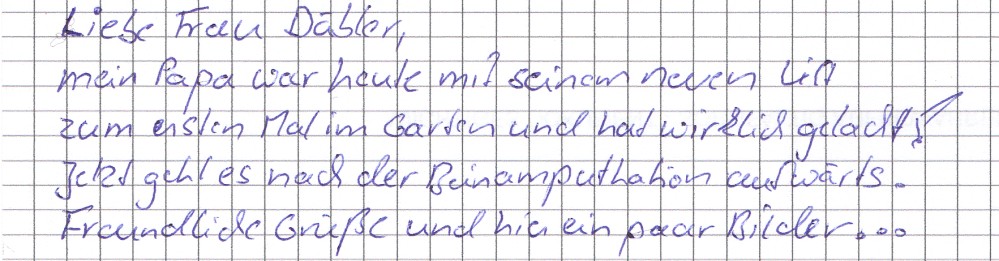 Liebe Frau Däbler,
mein Papa war heute mit seinem neuen Lift
zum ersten Mal im Garten und hat wirklich gelacht!
Jetzt geht es nach der Beinamputhation aufwärts.
Freundliche Grüße und hier ein paar Bilder...